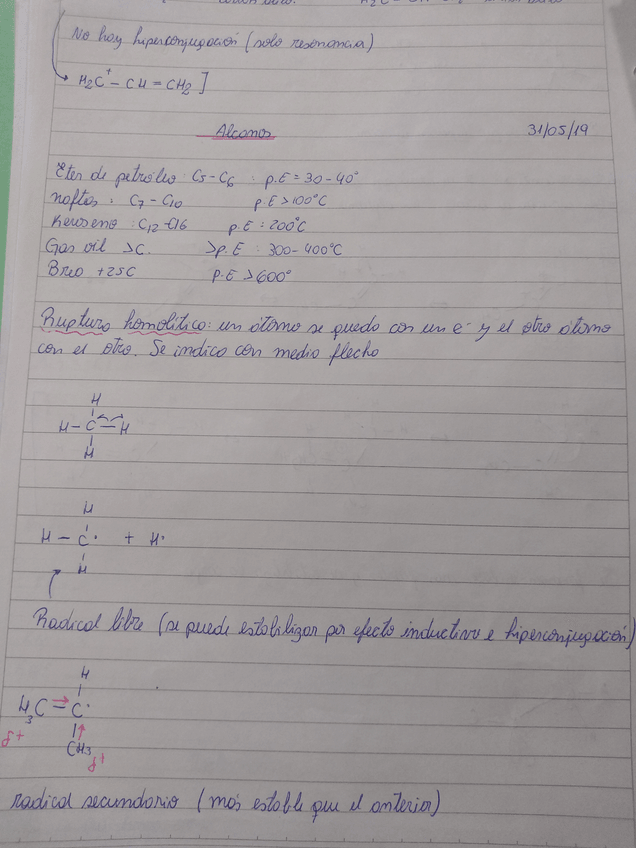 No hay hiperconjugación (solo resonancia)
H₂C⁺ – CH = CH₂ ]
Alcanos 31/05/19
Eter de petróleo: C₅ – C₆ : p.E = 30 – 40°
naftas : C₇ – C₁₀ p.E > 100°C
Keroseno : C₁₂ – C₁₆ p.E = 200°C
Gas oil >C. >p.E : 300 – 400°C
Brea +25C p.E > 600°
Ruptura homolítica: un átomo se queda con un e⁻ y el otro átomo
con el otro. Se indica con media flecha
H
H – C – H
H
H
H – C· + H·
H
Radical libre (se puede estabilizar por efecto inductivo e hiperconjugación)
H
H₃C → C·
δ+ CH₃
δ+
radical secundario (más estable que el anterior)